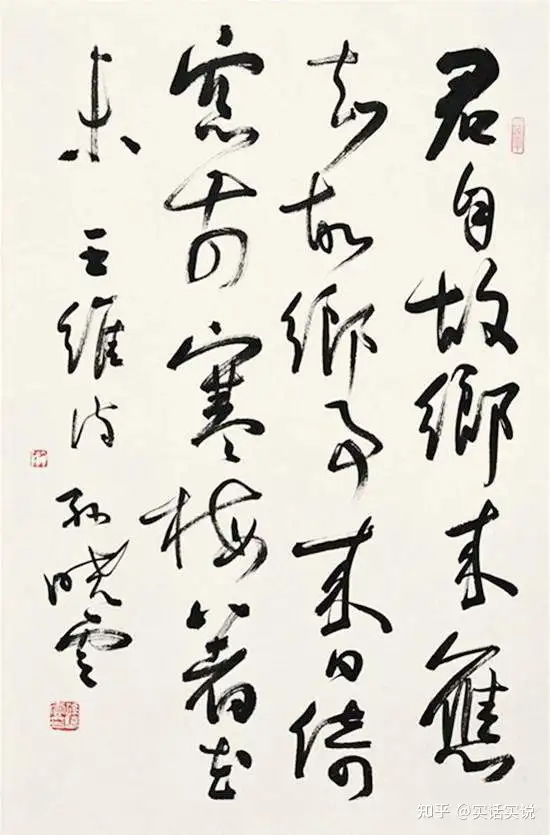 君自故鄉来應
知故鄉事来日綺
窓前寒梅著花
未 王維詩 孫曉雲
知乎 @实话实说